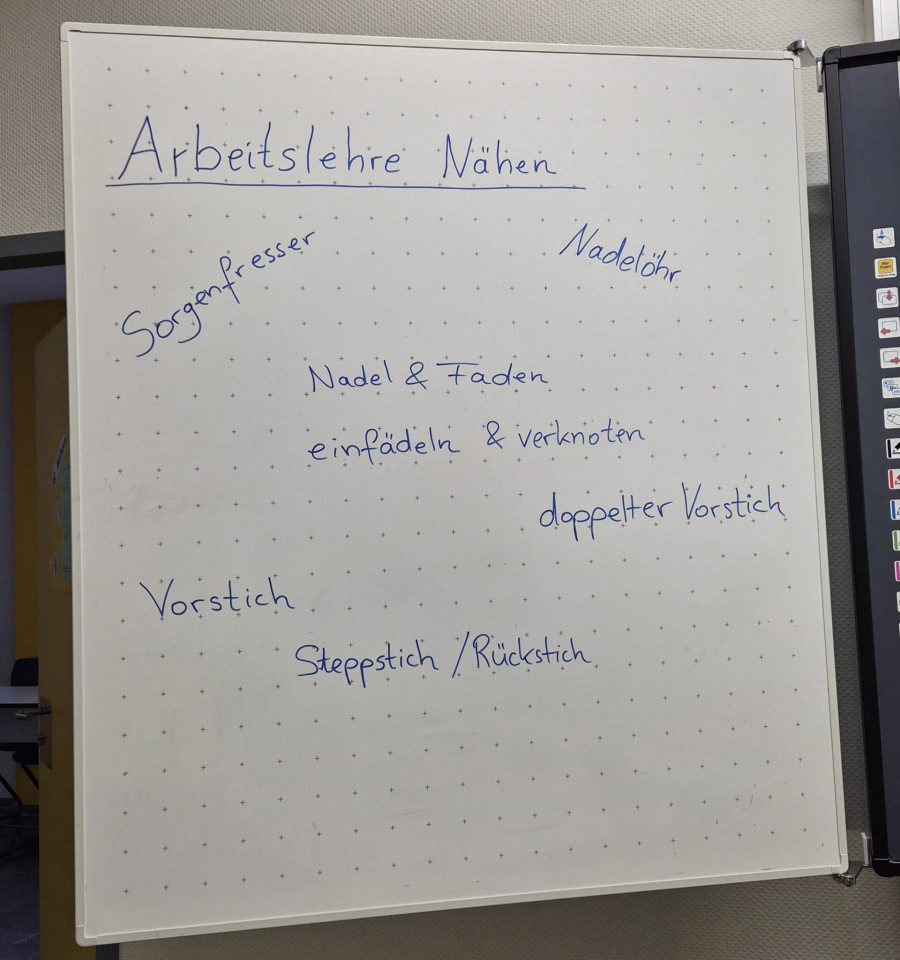 Arbeitslehre Nähen
Sorgenfresser
Nadelöhr
Nadel & Faden
einfädeln & verknoten
doppelter Vorstich
Vorstich
Steppstich / Rückstich